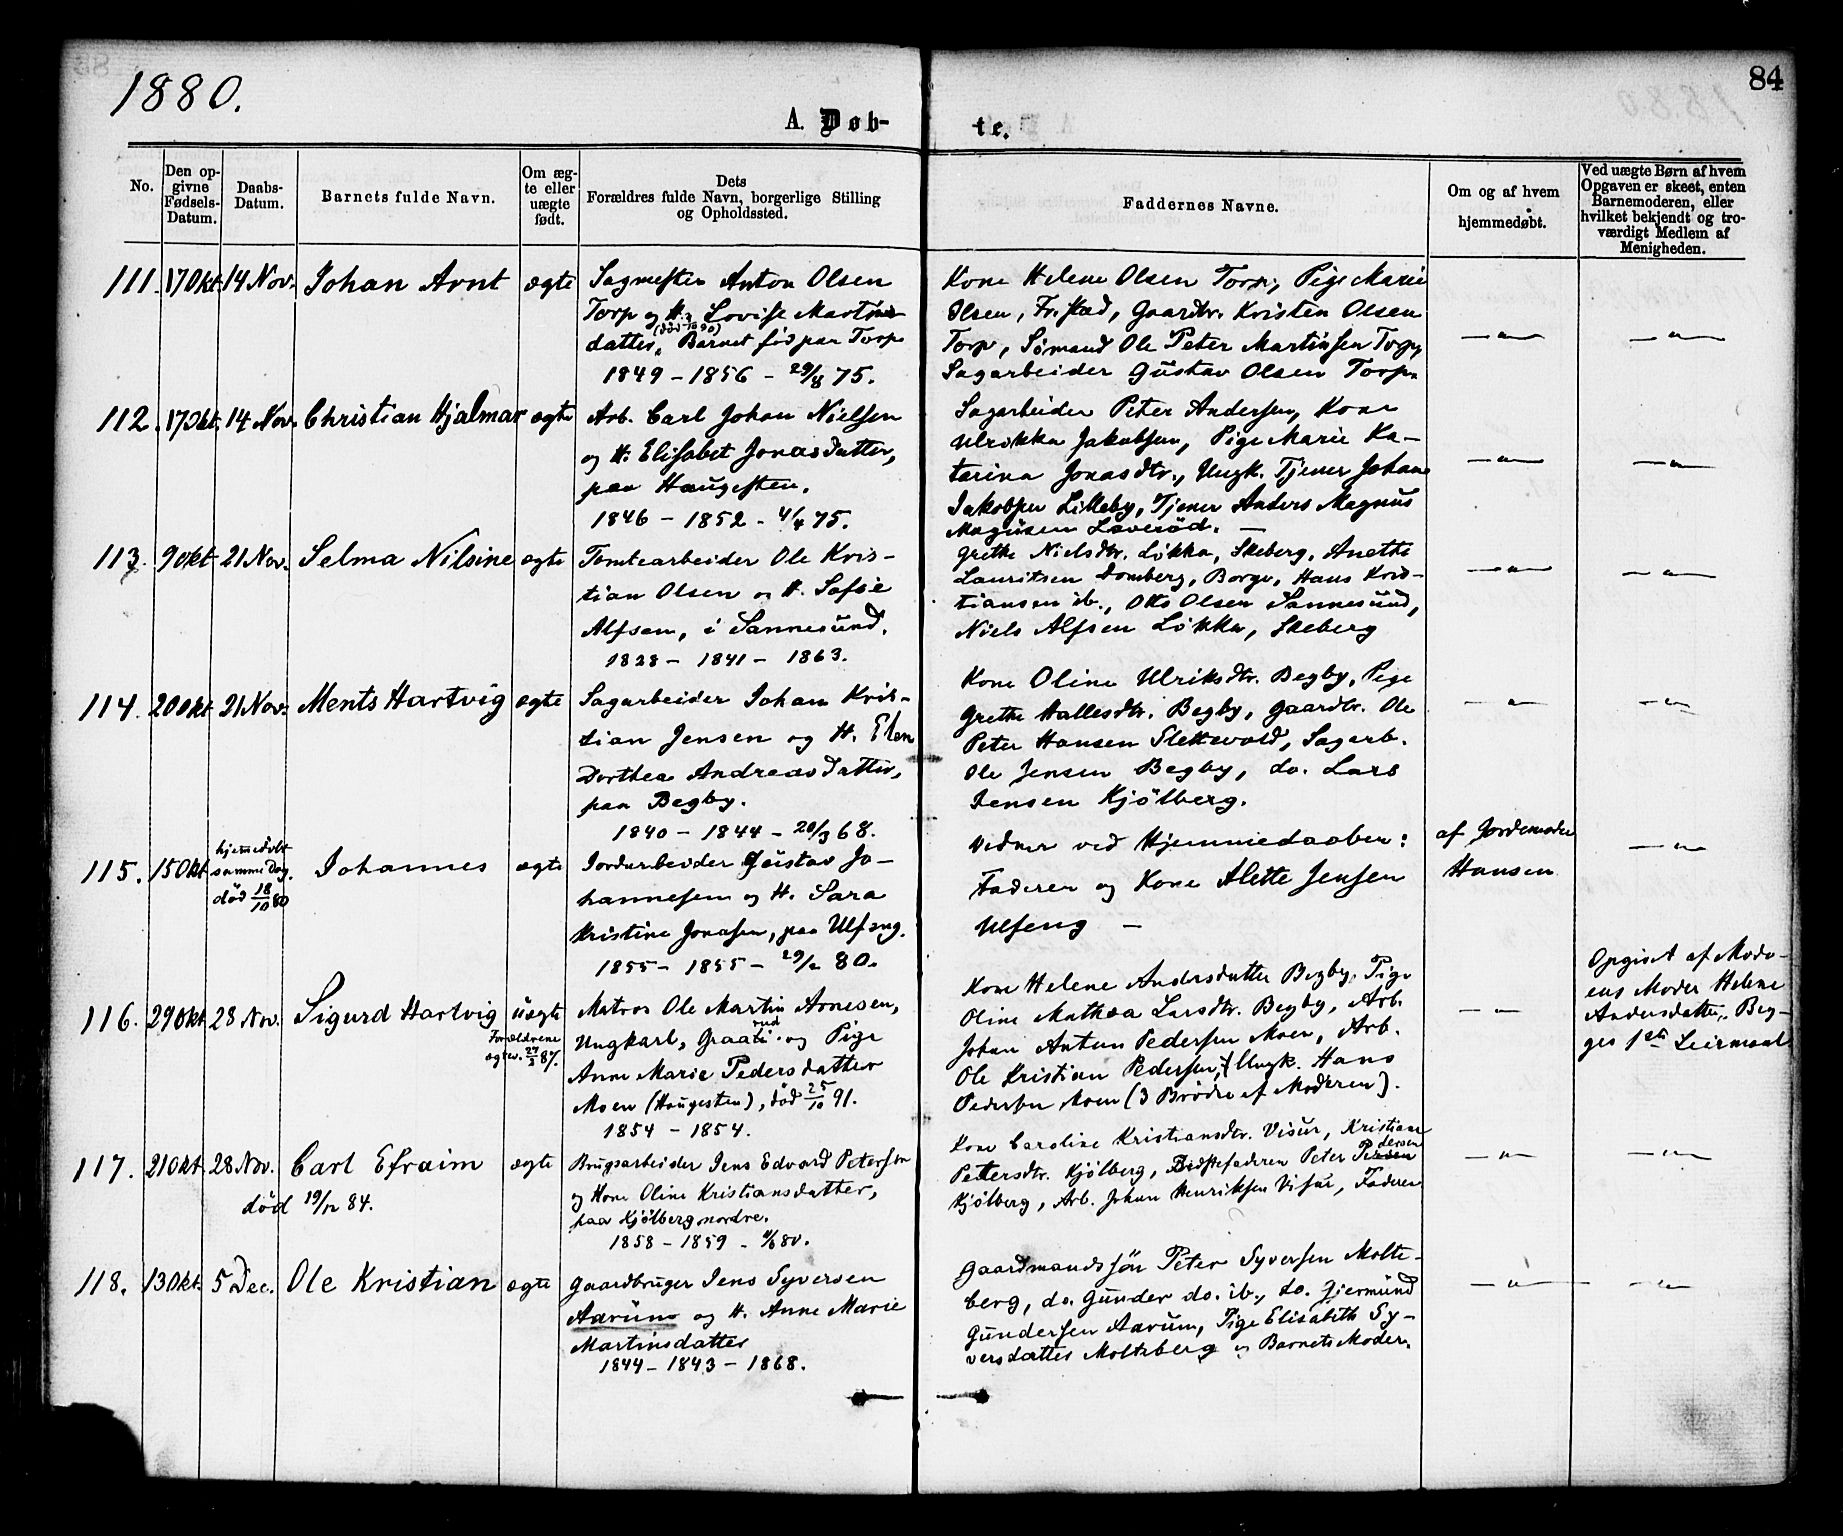 84
1880.
A. Døb-
te.
No.
Den op-
givne
Fødsels-
Datum.
Daabs-
Datum.
Barnets fulde Navn.
Om æg-
te eller
uægte
født.
Dets
Forældres fulde Navn, borgerlige Stilling
og Opholdssted.
Faddernes Navne.
Om og af hvem
hjemmedøbt.
Ved uægte Børn af hvem
Opgaven er skeet, enten
Barnemoderen, eller
hvilket bekjendt og tro-
værdigt Medlem af
Menigheden.
111. 17 Okt. 14 Nov. Johan Arnt ægte
Sagmester Anton Olsen
Torp og H. Lovise Martins-
(død 1890)
datter, Barnet fød paa Torp
1849 - 1856 - 29/8 75.
Kone Helene Olsen Torp, Pige Marie
Olsen, Fr.stad, Gaardbr. Kristen Olsen
Torp, Sømand Ole Peter Martinsen Torp,
Sagarbeider Gustav Olsen Torp.
112. 17 Okt. 14 Nov. Christian Hjalmar ægte
Arb. Carl Johan Nielsen
og H. Elisabet Jonasdatter,
paa Haugesten.
1846 - 1852 - 4/4 75.
Sagarbeider Peter Andersen, Kone
Ulrikka Jakobsen, Pige Marie Ka-
tarina Jonasdtr., Ungk. Tjener Johan
Jakobsen Lilleby, Tjener Anders Magnus
Magnusen
113. 9 Okt. 21 Nov. Selma Nilsine ægte
Tomtearbeider Ole Kris-
tian Olsen og H. Sofie
Alfsen, i Sannesund.
1828 - 1841 - 1863.
Grethe Nielsdtr. Løkka, Skeberg, Anethe
Lauritsen Domberg, Borge, Hans Kris-
tiansen ib., Otto Olsen Sannesund,
Niels Alfsen Løkka, Skeberg
114. 20 Okt. 21 Nov. Ments Hartvig ægte
Sagarbeider Johan Kris-
tian Jensen og H. Elen
Dorthea Andreasdatter,
paa Begby.
1840 - 1844 - 20/3 68.
Kone Oline Ulriksdtr. Begby, Pige
Grethe Hallesdtr. Begby, Gaardbr. Ole
Peter Hansen Slettevold, Sagarb.
Ole Jensen Begby, do. Lars
Jensen Kjølberg.
115. 15 Okt. hjemmedøbt
samme Dag.
død 18/10 80
Johannes ægte
Jordarbeider Gustav Jo-
hannesen og H. Sara
Kristine Jonasen, paa Ulfeng.
1855 - 1855 - 29/2 80.
Vidner ved Hjemmedaaben:
Faderen og Kone Alette Jensen
Ulfeng -
af Jordemoder
Hansen
116. 29 Okt. 28 Nov. Sigurd Hartvig uægte
Forældrene
ægtev. 27/2 87.
Matros Ole Martin Arnesen,
Ungkarl, Graatirud og Pige
Anne Marie Pedersdatter
Moen (Haugesten), død 25/10 91.
1854 - 1854.
Kone Helene Andersdatter Begby, Pige
Oline Mathea Larsdtr. Begby, Arb.
Johan Anton Pedersen Moen, Arb.
Ole Kristian Pedersen, Ungk. Hans
Pedersen Moen (3 Brødre af Moderen).
Opgivet af Mode-
ens Moder Helene
Andersdatter, Beg-
ges 1ste Leiermaal
117. 21 Okt. 28 Nov. Carl Efraim ægte
død 19/12 84.
Brugsarbeider Jens Edvard Petersen
og Kone Oline Kristiansdatter,
paa Kjølberg nordre.
1858 - 1859 - 80.
Kone Caroline Kristiansdtr. Visur, Kristian
Pettersdtr. Kjølberg, Bedstefaderen Peter Pedersen
Kjølberg, Arb. Johan Henriksen Visur, Faderen
118. 13 Okt. 5 Dec. Ole Kristian ægte
Gaardbruger Jens Syversen
Aarum og H. Anne Marie
Martinsdatter
1844 - 1843 - 1868.
Gaardmandssøn Peter Syversen Molte-
berg, do. Gunder do. ib., do. Gjermund
Gundersen Aarum, Pige Elisabeth Sy-
versdatter Molteberg og Barnets Moder.